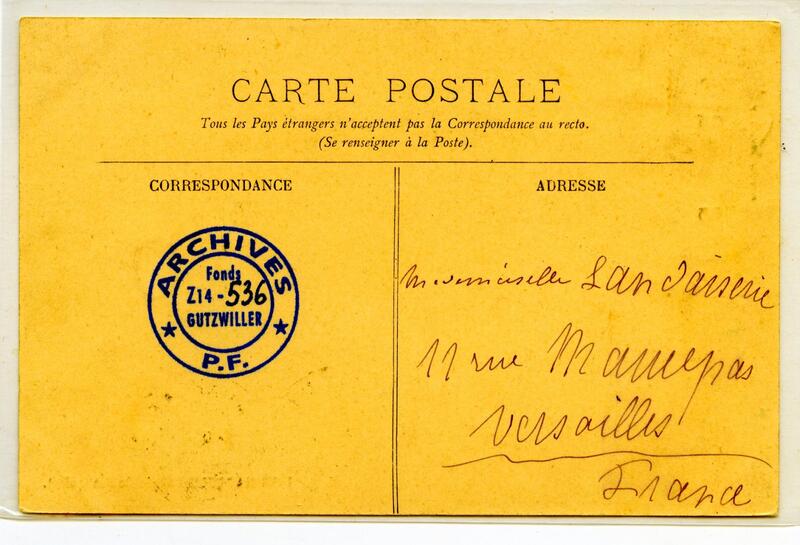 CARTE POSTALE
Tous les Pays étrangers n'acceptent pas la Correspondance au recto.
(Se renseigner à la Poste).
CORRESPONDANCE
ADRESSE
ARCHIVES
Fonds
Z14-536
GUTZWILLER
P.F.
Mademoiselle Landaiserie
11 rue
Versailles
France